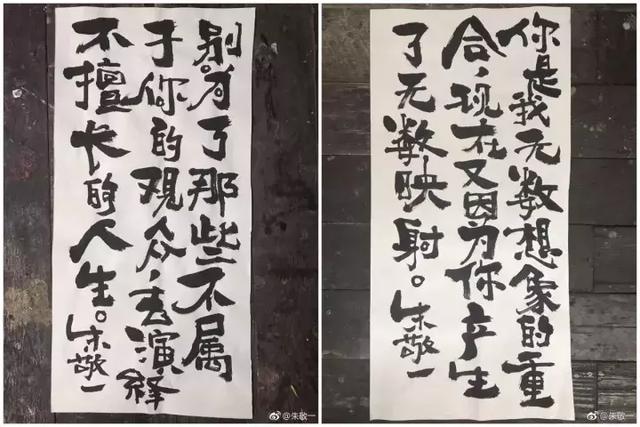 别为了那些不属
于你的观众，去演绎
不擅长的人生。朱敬一
@朱敬一
你是我无数想象的重
合，现在又因为你产生
了无数映射。朱敬一
@朱敬一